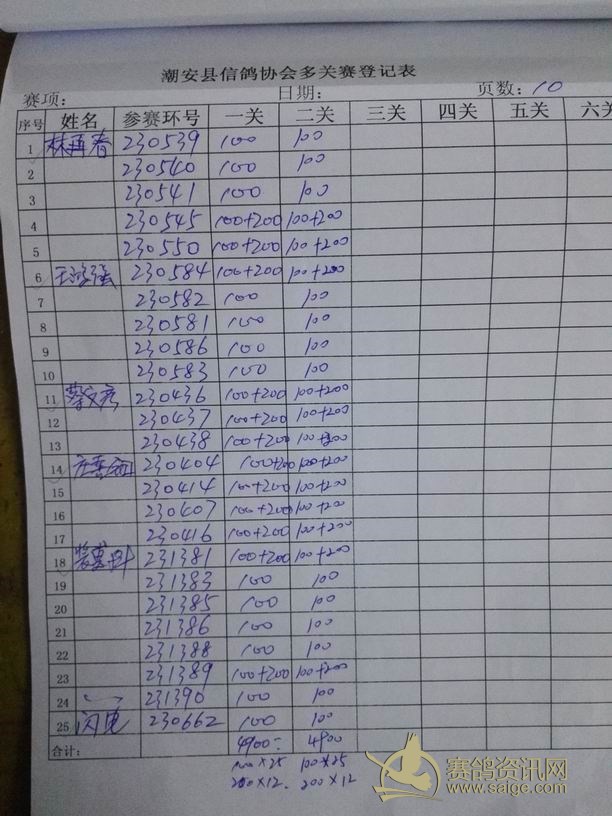 潮安县信鸽协会多关赛登记表
赛项： 日期： 页数：10
序号 姓名 参赛环号 一关 二关 三关 四关 五关 六关
1 林再春 230539 100 100
2 230540 100 100
3 230541 100 100
4 230545 100+200 100+200
5 230550 100+200 100+200
6 230584 100+200 100+200
7 230582 100 100
8 230581 100 100
9 230586 100 100
10 230583 100 100
11 230436 100+200 100+200
12 230437 100+200 100+200
13 230438 100+200 100+200
14 230404 100+200 100+200
15 230414 100+200 100+200
16 230407 100+200 100+200
17 230416 100+200 100+200
18 231381 100+200 100+200
19 231383 100 100
20 231385 100 100
21 231386 100 100
22 231388 100 100
23 231389 100+200 100+200
24 231390 100 100
25 闪电 230662 100 100
合计： 4900- 4900
100×25 100×25
200×12. 200×12
赛鸽资讯网
www.saige.com